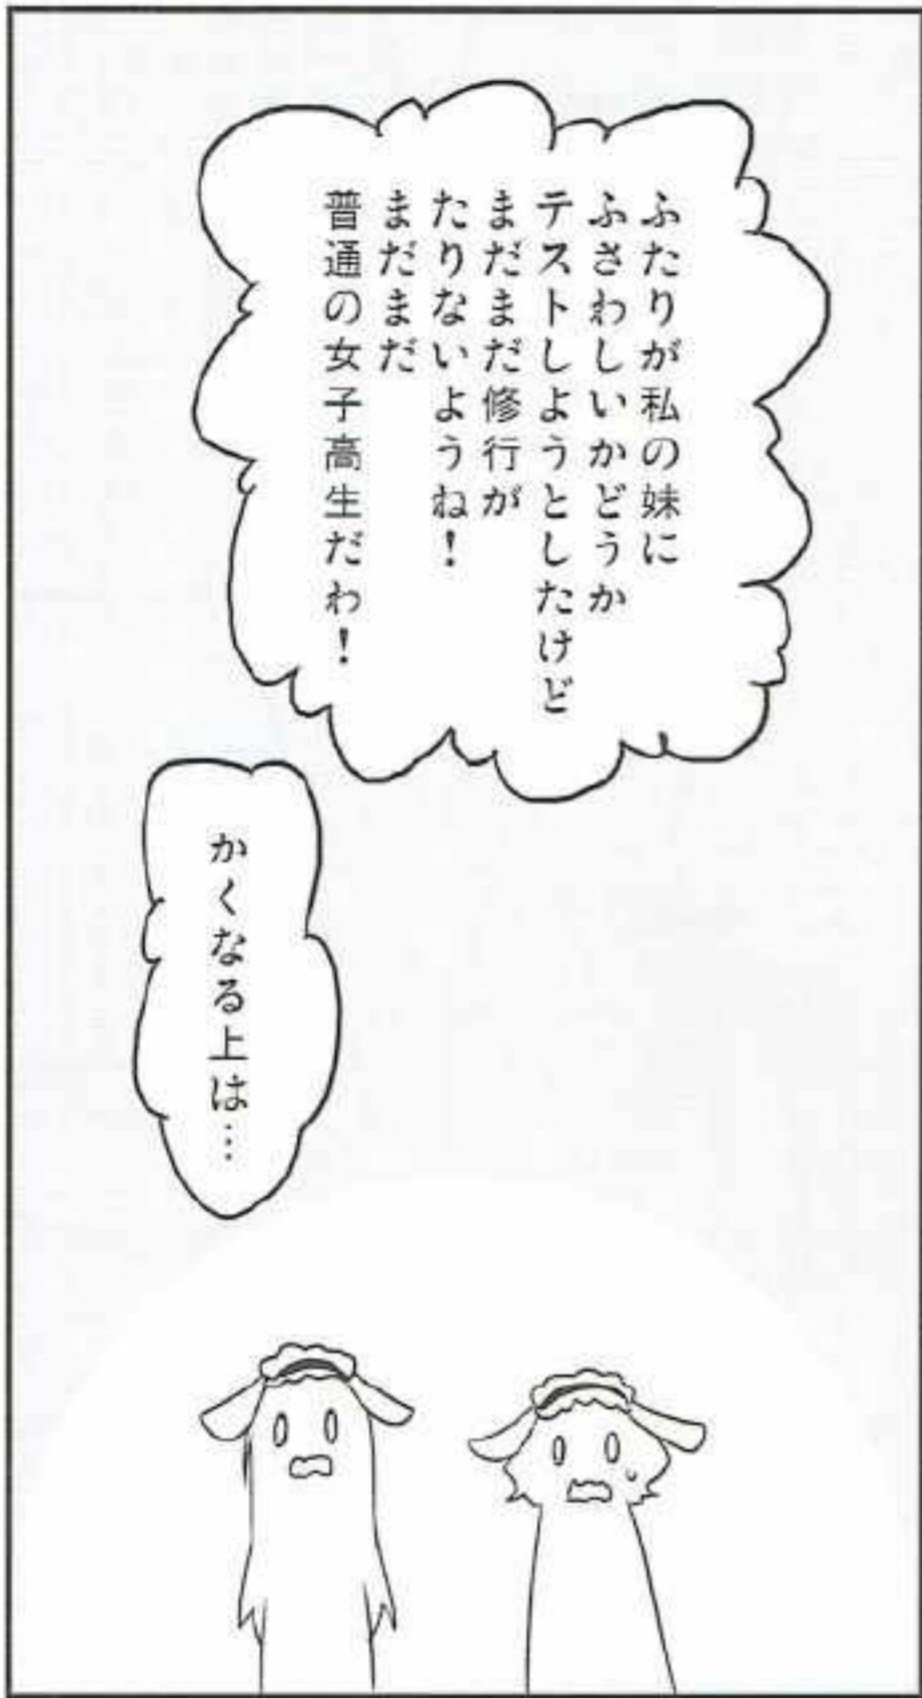 ふたりが私の妹に
ふさわしいかどうか
テストしようとしたけど
まだまだ修行が
たりないようね！
まだまだ
普通の女子高生だわ！
かくなる上は…